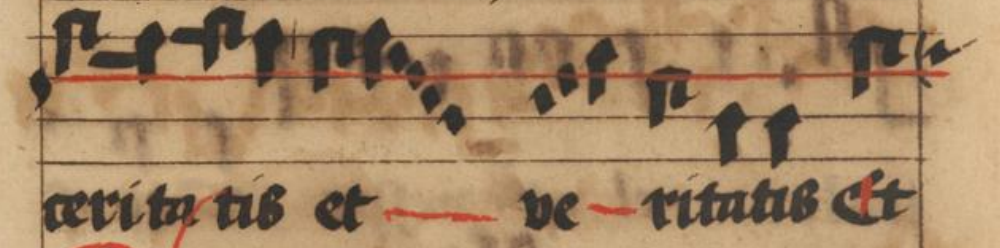 ceritatis et ve ritatis Et